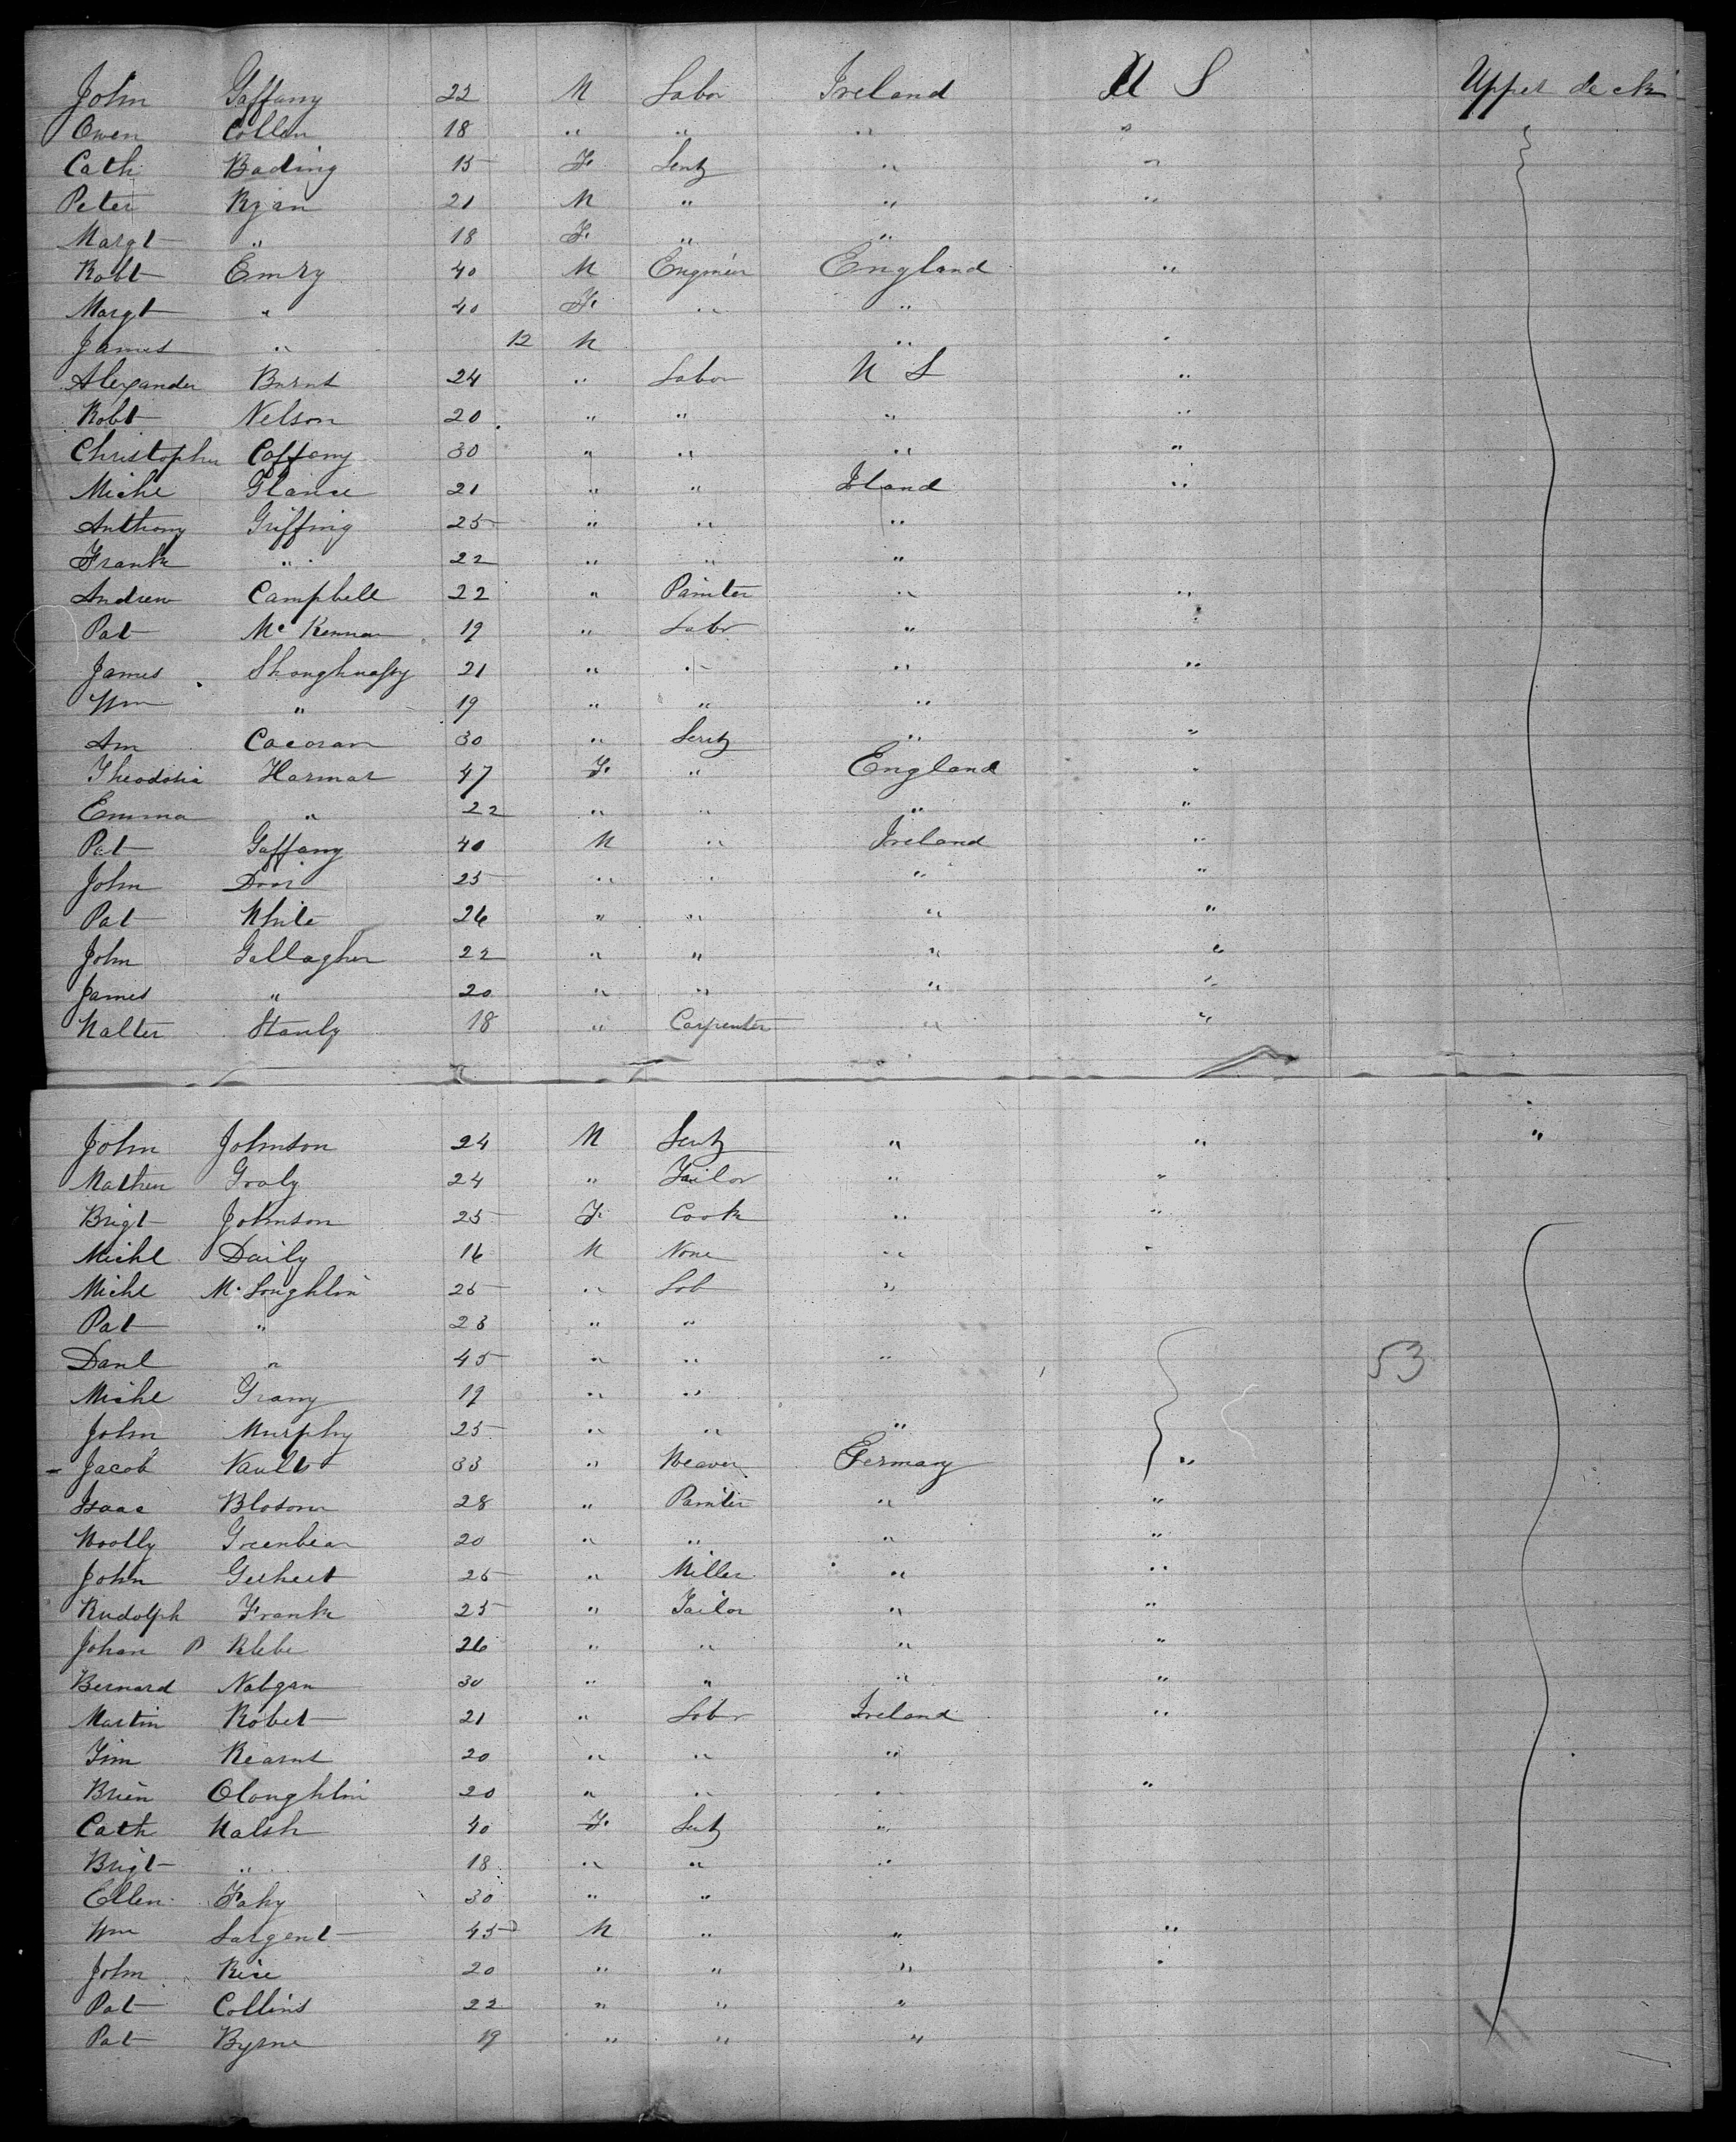 John Gaffany 22 M Labor Ireland U S Upper deck
Owen Collen 18 " " " "
Cath Bading 15 F. " "
Peter Ryan 21 M " " "
Margt " 18 F. " "
Robt Emry 40 M Engineer England "
Margt " 40 F. " "
James " 12 M " "
Alexander Burns 24 " Labor U S "
Robt Nelson 20 " " " "
Christopher Caffany 30 " " " "
Michl 21 " " "
Anthony Griffing 25 " " "
Frank " 22 " " "
Andrew Campbell 22 " Painter " "
Pat Mc Kenna 19 " Labr " "
James Shaughnessy 21 " " " "
Wm " 19 " " "
Am Cacoran 30 " " "
Theodosia Harmar 47 F. " England "
Emma " 22 " " " "
Pat Gaffany 40 M " Ireland "
John 25 " " " "
Pat White 26 " " " "
John Gallagher 22 " " " "
James " 20 " " " "
Walter Stanly 18 " Carpenter " "
John Johnson 24 M " " "
Mathew Graly 24 " Tailor " "
Brigt Johnson 25 F. Cook " "
Michl Daily 16 M None " "
Michl Mc Loughlin 25 " Lab "
Pat " 23 " "
Danl " 45 " " " 53
Michl Grany 19 " "
John Murphy 25 " " "
Jacob Vault 33 " Weaver Germany "
Isaac Blosom 28 " Painter " "
Woolly Greenbear 20 " " " "
John 25 " Miller " "
Rudolph Frank 25 " Tailor " "
Johan P Klebe 26 " " " "
Bernard Nabgan 30 " " " "
Martin Robet 21 " Labr Ireland "
Tim Kearns 20 " " "
Brien Oloughlin 20 " " " "
Cath Walsh 40 F. "
Brigt " 18 " " "
Ellen Fahy 30 " "
Wm Sargent 45 M " " "
John Rice 20 " " " "
Pat Collins 22 " " "
Pat Byrne 19 " " "